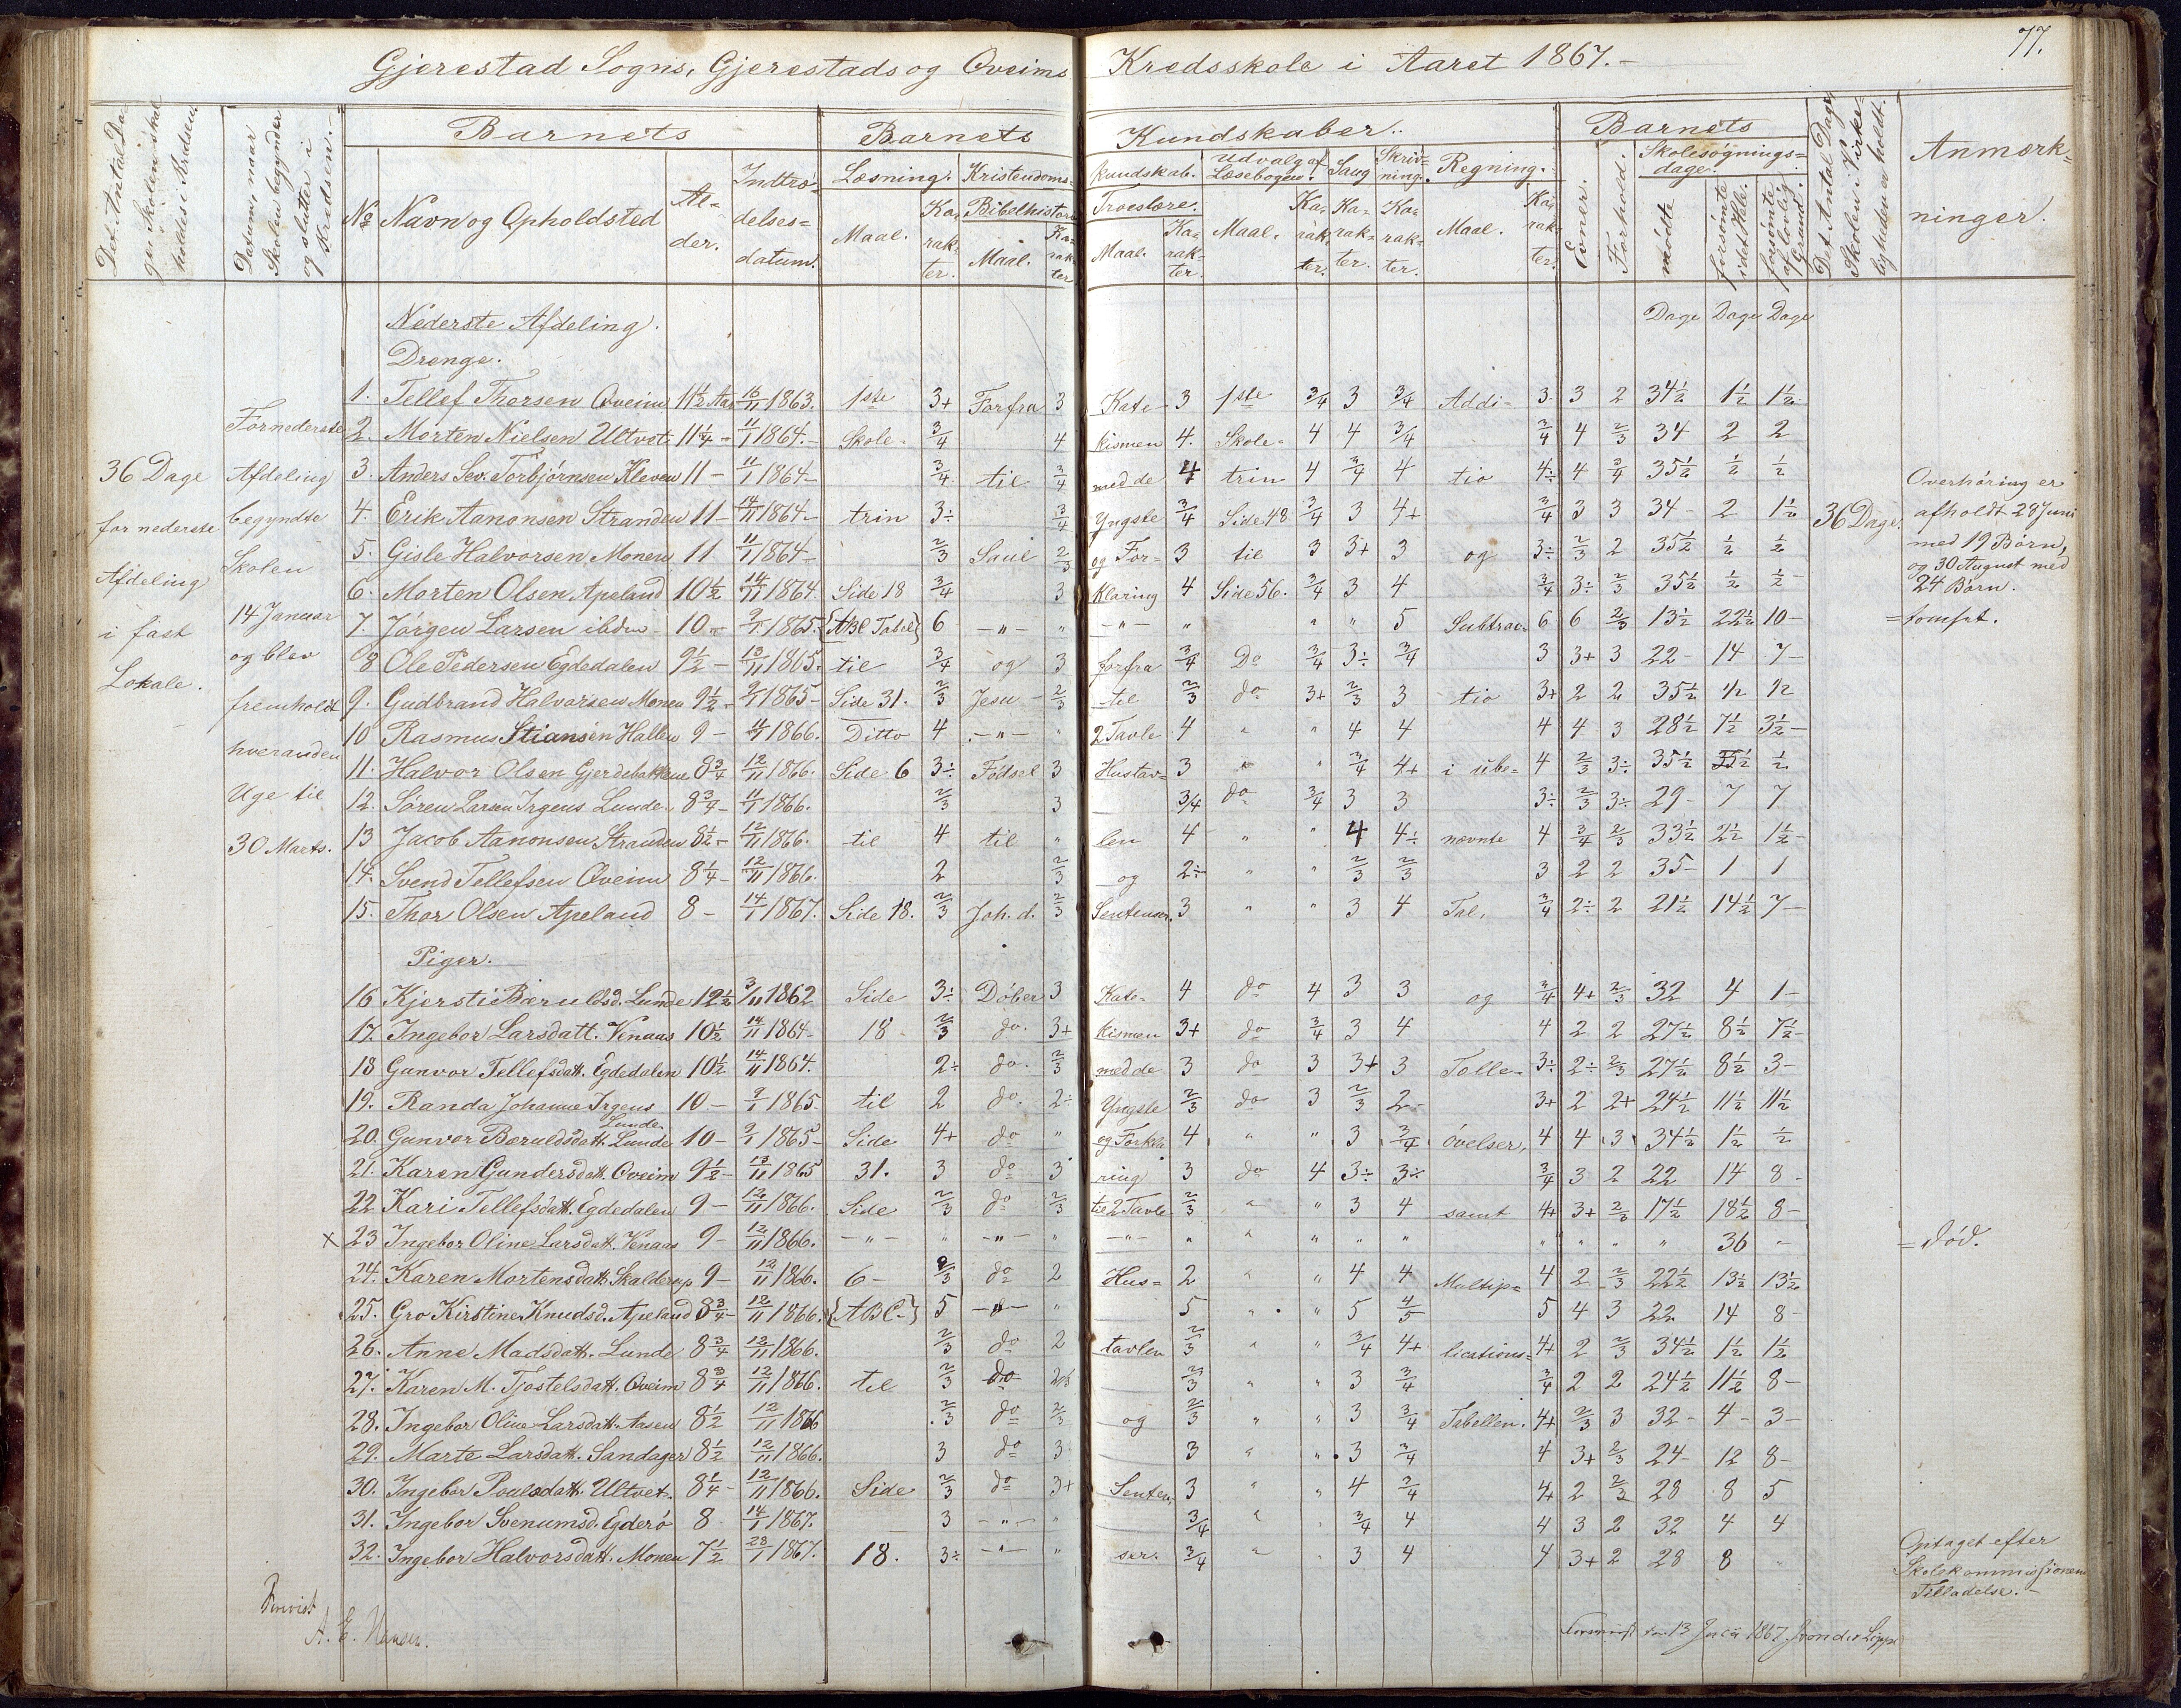 77.
Gjerestad Sogns, Gjerestads og Qveims Kredsskole i Aaret 1867.-
Det Antal Dage Skolen skal holdes i Kredsen.
Datum, naar Skolen begynder og slutter i Kredsen.-
Barnets
Barnets Kundskaber..
Barnets
Det Antal Dage Skolen i Virkeligheden er holdt.
Anmærkninger.
No Navn og Opholdsted
Alder.
Indtrædelsesdatum.
Læsning. Kristendomskundskab. Udvalg af Læsebogen. Sang Skrivning. Regning.
Bibelhistorie Troeslære.
Maal. Karakter. Maal. Karakter Maal. Karakter. Maal. Karakter. Karakter. Karakter. Maal. Karakter.
Evner. Forhold. Skolesøgningsdage.
mødte forsømte i det Hele. forsømte af lovlig Grund.
Dage Dage Dage
Nederste Afdeling.
Drenge.
36 Dage
for nederste
Afdeling
i fast
Lokale.
For nederste
Afdeling
begyndte
Skolen
14 Januar
og blev
fremholdt
hveranden
Uge til
30 Marts.
1. Tellef Thorsen Qveim 11½ Aar 16/11 1863. 1ste 3+ Forfra 3 Kate- 3 1ste 3/4 3 3/4 Addi= 3. 3 2 34½ 1½ 1½
2. Morten Nielsen Ultvet 11¼ - 11/1 1864.- Skole- 3/4 4 kismen 4. Skole= 4 4 3/4 3/4 4 2/3 34 2 2
3. Anders Sev. Torbjørnsen Kleven 11 - 11/1 1864- 3/4 til 3/4 med de 4 trin 4 3/4 4 tio 4÷ 4 3/4 35½ ½ ½
4. Erik Aanonsen Stranden 11- 14/11 1864- trin 3÷ 3/4 Yngste 3/4 Side 48 3/4 3 4+ 3/4 3 3 34- 2 1½ 36 Dage.
5. Gisle Halvorsen Monen 11 11/1 1864- 2/3 Saul 2/3 og For- 3 til 3 3+ 3 og 3÷ 2/3 2 35½ ½ ½
6. Morten Olsen Apeland 10½ 14/11 1864. Side 18 3/4 3 klaring 4 Side 56. 3/4 3 4 3/4 3÷ 2/3 35½ ½ ½
7. Jørgen Larsen ibdm 10- 9/1 1865. {ABC Tabel} 6 -"- " -"- " " " 5 Subtrac= 6 6 2/3 13½ 22½ 10- =tomset.
8 Ole Pedersen Egdedalen 9½ - 13/11 1865. til 3/4 og 3 forfra 3/4 Do 3/4 3÷ 3/4 3 3+ 3 22- 14 7-
9. Gudbrand Halvorsen Monen 9½ - 9/1 1865- Side 31. 2/3 Jesu 2/3 til 2/3 do 3+ 2/3 3 tio 3+ 2 2 35½ ½ ½
10 Rasmus Stiansen Hallen 9 - 11/1 1866. Ditto 4 -"- " 2 Tavle 4 " " 4 4 4 4 3 28½ 7½ 3½-
11. Halvor Olsen Gjerdebakken 8¾ 12/11 1866. Side 6 3÷ Fødsel 3 Hustav= 3 " 3/4 4+ i ube= 4 2/3 3÷ 35½ ½ ½
12. Søren Larsen Irgens Lunde 8¾ - 11/1 1866. 2/3 3 3/4 do 3/4 3 3 3÷ 2/3 3÷ 29- 7 7
13 Jacob Aanonsen Stranden 8½ - 12/11 1866. til 4 til " len 4 " " 4 4÷ nævnte 4 3/4 2/3 33½ 2½ 1½-
14. Svend Tellefsen Qveim 8¼ - 12/11 1866. 2 2/3 og 2÷ " " 2/3 2/3 3 2 2 35- 1 1
15. Thor Olsen Apeland 8 - 14/1 1867. Side 18. 2/3 Joh. d. 2/3 Sentenser. 3 " " 3 4 Tal, 3/4 2÷ 2 21½ 14½ 7-
Piger.
16 Kjersti Bæruldsd. Lunde 12½ 3/11 1862 Side 3÷ Døber 3 Kate- 4 do 4 3 3 og 3/4 4+ 2/3 32 4 1-
17. Ingebor Larsdatt. Venaas 10½ 14/11 1864- 18 2/3 do. 3+ kismen 3+ do 3/4 3 4 4 2 2 27½ 8½ 7½-
18 Gunvor Tellefsdatt. Egdedalen 10½ 14/11 1864. 2÷ do. 2/3 med de 3 do 3 3+ 3 Tælle- 3÷ 2÷ 2/3 27½ 8½ 3-
19. Randa Johanne Irgens Lunde 10- 9/1 1865 til 2 do. 2÷ Yngste 2/3 do 3 2/3 2- 3+ 2 2+ 24½ 11½ 11½
20. Gunvor Bæruldsdatt. Lunde 10- 9/1 1865- Side 4+ do " og Forkla 4 " " 3 3/4 øvelser, 4 4 3 34½ 1½ ½
21. Karen Gundersdatt. Qveim 9½- 13/11 1865 31. 3 do 3 ring 3 do 4 3÷ 3÷ 3/4 3 2 22 14 8-
22 Kari Tellefsdatt. Egdedalen 9- 12/11 1866. Side 2/3 do 2/3 til 2 Tavle 2/3 " " 3 4 samt 4+ 3+ 2/3 17½ 18½ 8-
x 23 Ingebor Oline Larsdatt. Venaas 9- 12/11 1866. -"- " -"- " -"- " " " " " " " " " 36 " = død.
24. Karen Mortensdatt. Skalderup 9- 12/11 1866. 6- 2/3 do 2 Hus= 2 " " 4 4 Multip= 4 2 2/3 22½ 13½ 13½
25. Gro Kirstine Knudsd. Apeland 8¾- 12/11 1866. {ABC-} 5 -"- " 5 " " 5 4/5 5 4 3 22 14 8-
26. Anne Madsdatt. Lunde 8¾ 12/11 1866. 2/3 do 2 tavlen 2/3 " " 3/4 4+ lications= 4+ 2 2/3 34½ 1½ 1½
27. Karen M. Tjostelsdatt. Qveim 8¾ 12/11 1866. til 2/3 do 2/3 2/3 " " 3 3/4 3/4 2 2 24½ 11½ 8-
28. Ingebor Oline Larsdatt. Aasen 8½ 12/11 1866 2/3 do 2/3 og 2/3 " " 3 3/4 Tabellen. 4+ 2/3 3 32- 4- 3-
29. Marte Larsdatt. Sandager 8½ 12/11 1866. 3 do 3 3 " " 3 3/4 4 3+ 2/3 24- 12 8-
30. Ingebor Poulsdatt. Ultvet. 8¼ - 12/11 1866. Side 2/3 do 3+ Senten= 3 " " 4 3/4 4+ 2 2/3 28 8 5
31. Ingebor Svenumsd. Egderø 8 14/1 1867. 3 -"- " 3/4 " " 3/4 4 4 3 2 32 4 4
32. Ingebor Halvorsdatt. Monen 7½ 28/1 1867. 18. 3÷ -"- " ser. 3/4 " " 3 4 4 3+ 2 28 8 "
Overhøring er
afholdt 28 Juni
med 19 Børn,
og 30 August med
24 Børn.
Optaget efter
Skolekommissionens
Tilladelse.-
A. E. Hansen.
13 1867. von der Lippe